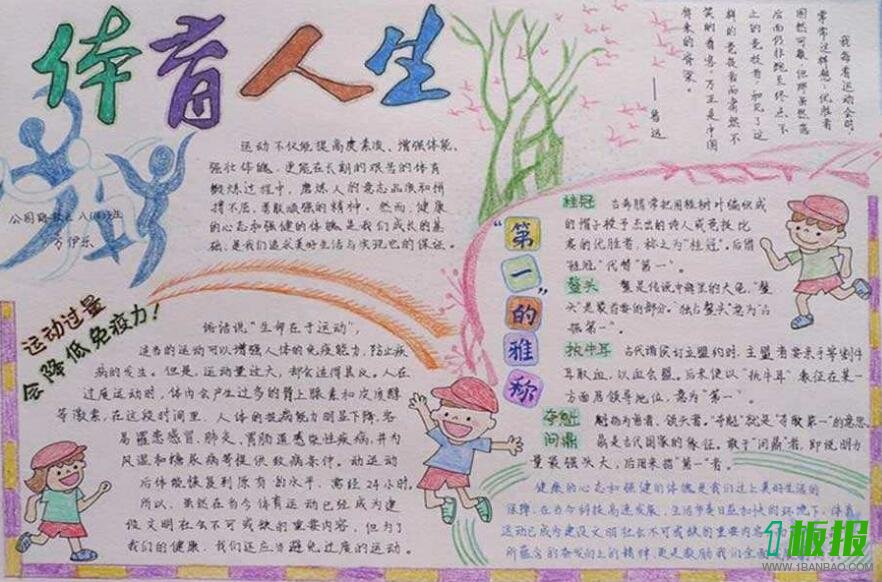 体育人生
运动不仅能提高度素质、增强体能、
强壮体魄，更能在长期的艰苦的体育
锻炼过程中，磨炼人的意志品质和拼
搏不屈、勇敢顽强的精神，然而，健康
的心态和强健的体魄是我们成长的基
础，是我们追求美好生活与实现也的保证。
方伊乐
我每看运动会时，
常常这样想：优胜者
固然可敬，但那虽然落
后而仍非跑至终点不
止的竞技者，和见了这
样的竞技者而肃然不
笑的看客，乃正是中国
将来的脊梁。
——鲁迅
运动过量
会降低免疫力！
俗话说“生命在于运动”，
适当的运动可以增强人体的免疫能力，防止疾
病的发生。但是，运动量过大，却会适得其反。人在
过度运动时，体内会产生过多的肾上腺素和皮质醇
等激素，在这段时间里，人体的抗病能力明显下降，容
易罹患感冒、肺炎、胃肠道感染性疾病，并为
风湿和糖尿病等提供致病条件。动运动
后体能恢复到原有的水平，需经24小时。
所以，虽然在当今体育运动已经成为建
设文明社会不可或缺的重要内容，但为了
我们的健康，我们还应当避免过度的运动。
“第一”的雅称
桂冠 古希腊常把用桂树叶编织成
的帽子授予杰出的诗人或竞技比
赛的优胜者，称之为“桂冠”。后借
“桂冠”代替“第一”。
鳌头 鳌是传说中海里的大龟，“鳌
头”是最首要的部分。“独占鳌头”意为“占
据第一”。
执牛耳 古代诸侯订立盟约时，主盟者要亲手等割牛
耳取血，以血会盟。后来便以“执牛耳”表征在某一
方面居领导地位，意为“第一”。
夺魁 魁指为首者、领头者。“夺魁”就是“夺取第一”的意思。
问鼎 鼎是古代国家的象征。敢于“问鼎”者，即说明力
量最强头大，后用来指“第一”者。
健康的心态和强健的体魄是我们过上美好生活的
保障，在当今科技高速发展，生活节奏日益加快的环境下，体育
运动已成为建设文明社会不可或缺的重要内容
所蕴含的奋发向上的精神，更是激励我们全面
1板报
WWW.1BANBAO.COM